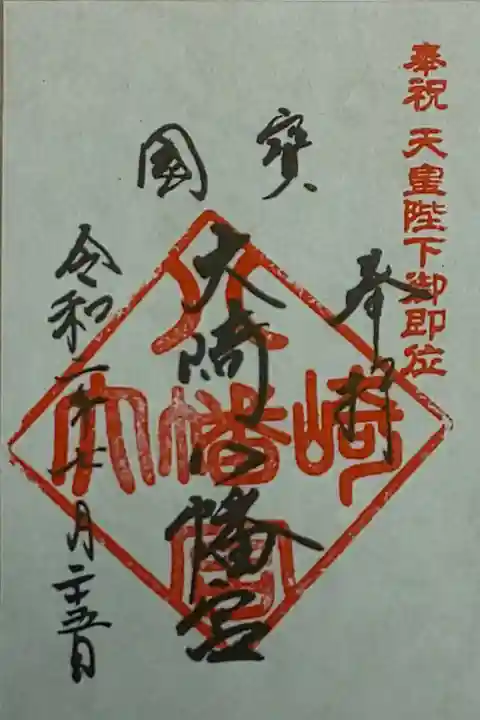 奉祝 天皇陛下御即位
奉拝
國寶
大崎八幡宮
令和二年七月二十五日
八
大幡崎
宮